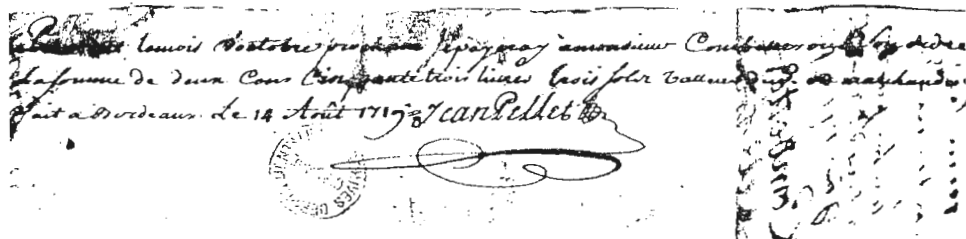 lemois d'octobre prochain Je payeray a monsieur ou a Son ordre
La somme de deux Cens Cinquante trois livres trois solz valleur en marchandises
fait a Bordeaux Le 14 Août 1719 Jean Pellet